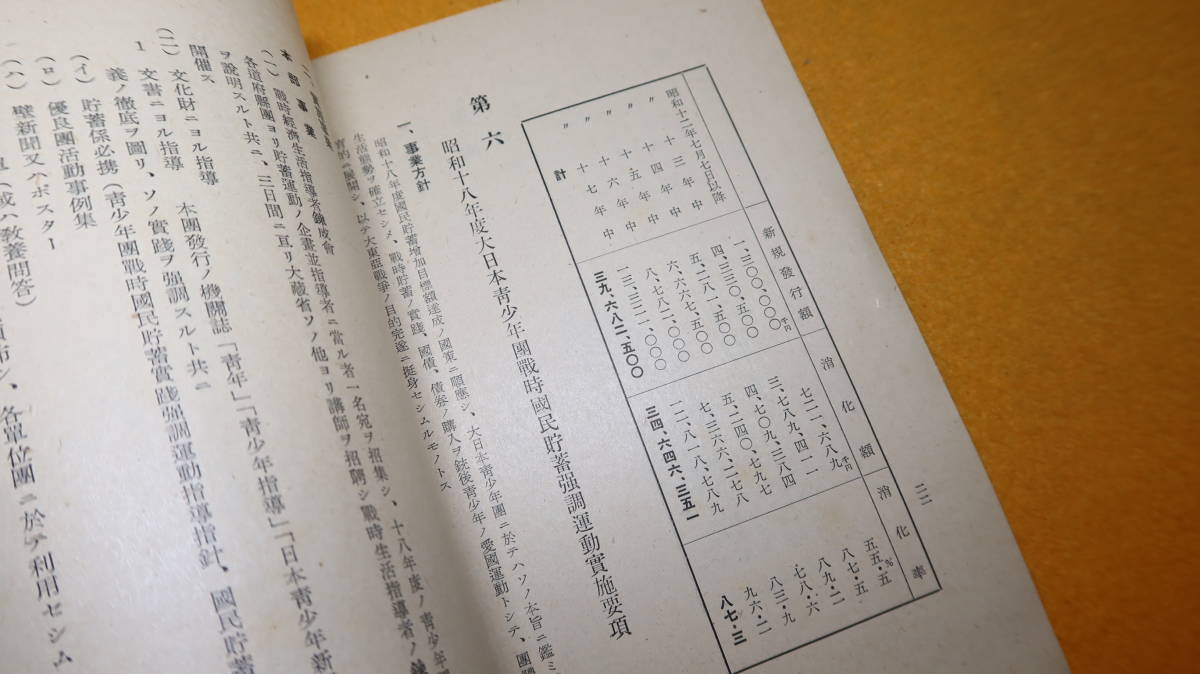 二二
新規發行額 消化額 消化率
昭和十二年七月七日以降 一、三〇〇、〇〇〇千円 七二一、六八九千円 五五・五%
〃 十三年中 四、三三〇、五〇〇 三、七八九、四一一 八七・五
〃 十四年中 五、二八一、五〇〇 四、七〇九、三八四 八九・二
〃 十五年中 六、六六七、五〇〇 五、二四〇、七九七 七八・六
〃 十六年中 八、七八二、〇〇〇 七、三六六、二七八 八三・九
〃 十七年中 一三、三二一、〇〇〇 一二、八一八、七八九 九六・二
計 三九、六八二、五〇〇 三四、六四六、三五一 八七・三
第六
昭和十八年度大日本靑少年團戰時國民貯蓄强調運動實施要項
一、事業方針
昭和十八年度國民貯蓄增加目標額達成ノ國策ニ順應シ、大日本靑少年團ニ於テハソノ本旨ニ鑑ミ
生活態勢ヲ確立セシメ、戰時貯蓄ノ實踐、國債、債券ノ購入ヲ銃後靑少年ノ愛國運動トシテ、團
育的ニ展開シ、以テ大東亞戰爭ノ目的完遂ニ挺身セシムルモノトス
本部事業
(一) 戰時經濟生活指導者鍊成會
各道府縣團ヨリ貯蓄運動ノ企畫並指導者ニ當ル者一名宛ヲ招集シ、十八年度ノ靑少年
ヲ說明スルト共ニ、三日間ニ亙リ大藏省ソノ他ヨリ講師ヲ招聘シ戰時生活指導者ノ鍊
開催ス
(二) 文化財ニヨル指導
1 文書ニヨル指導 本團發行ノ機關誌「靑年」「靑少年指導」「日本靑少年新
義ノ徹底ヲ圖リ、ソノ實踐ヲ强調スルト共ニ
(イ) 貯蓄係必携(靑少年團戰時國民貯蓄實踐强調運動指導指針、國民貯蓄
(ロ) 優良團活動事例集
(ハ) 壁新聞又ハポスター
(或ハ敎養問答)
布シ、各單位團ニ於テ利用セシム